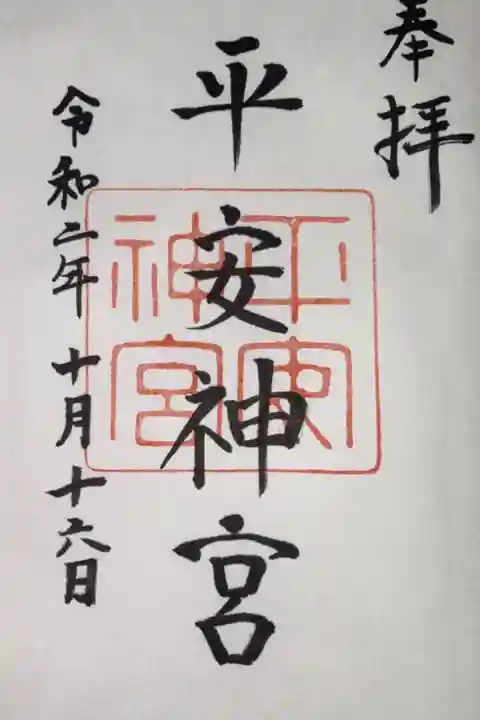 奉拝
平安神宮
平安神宮
令和二年十月十六日